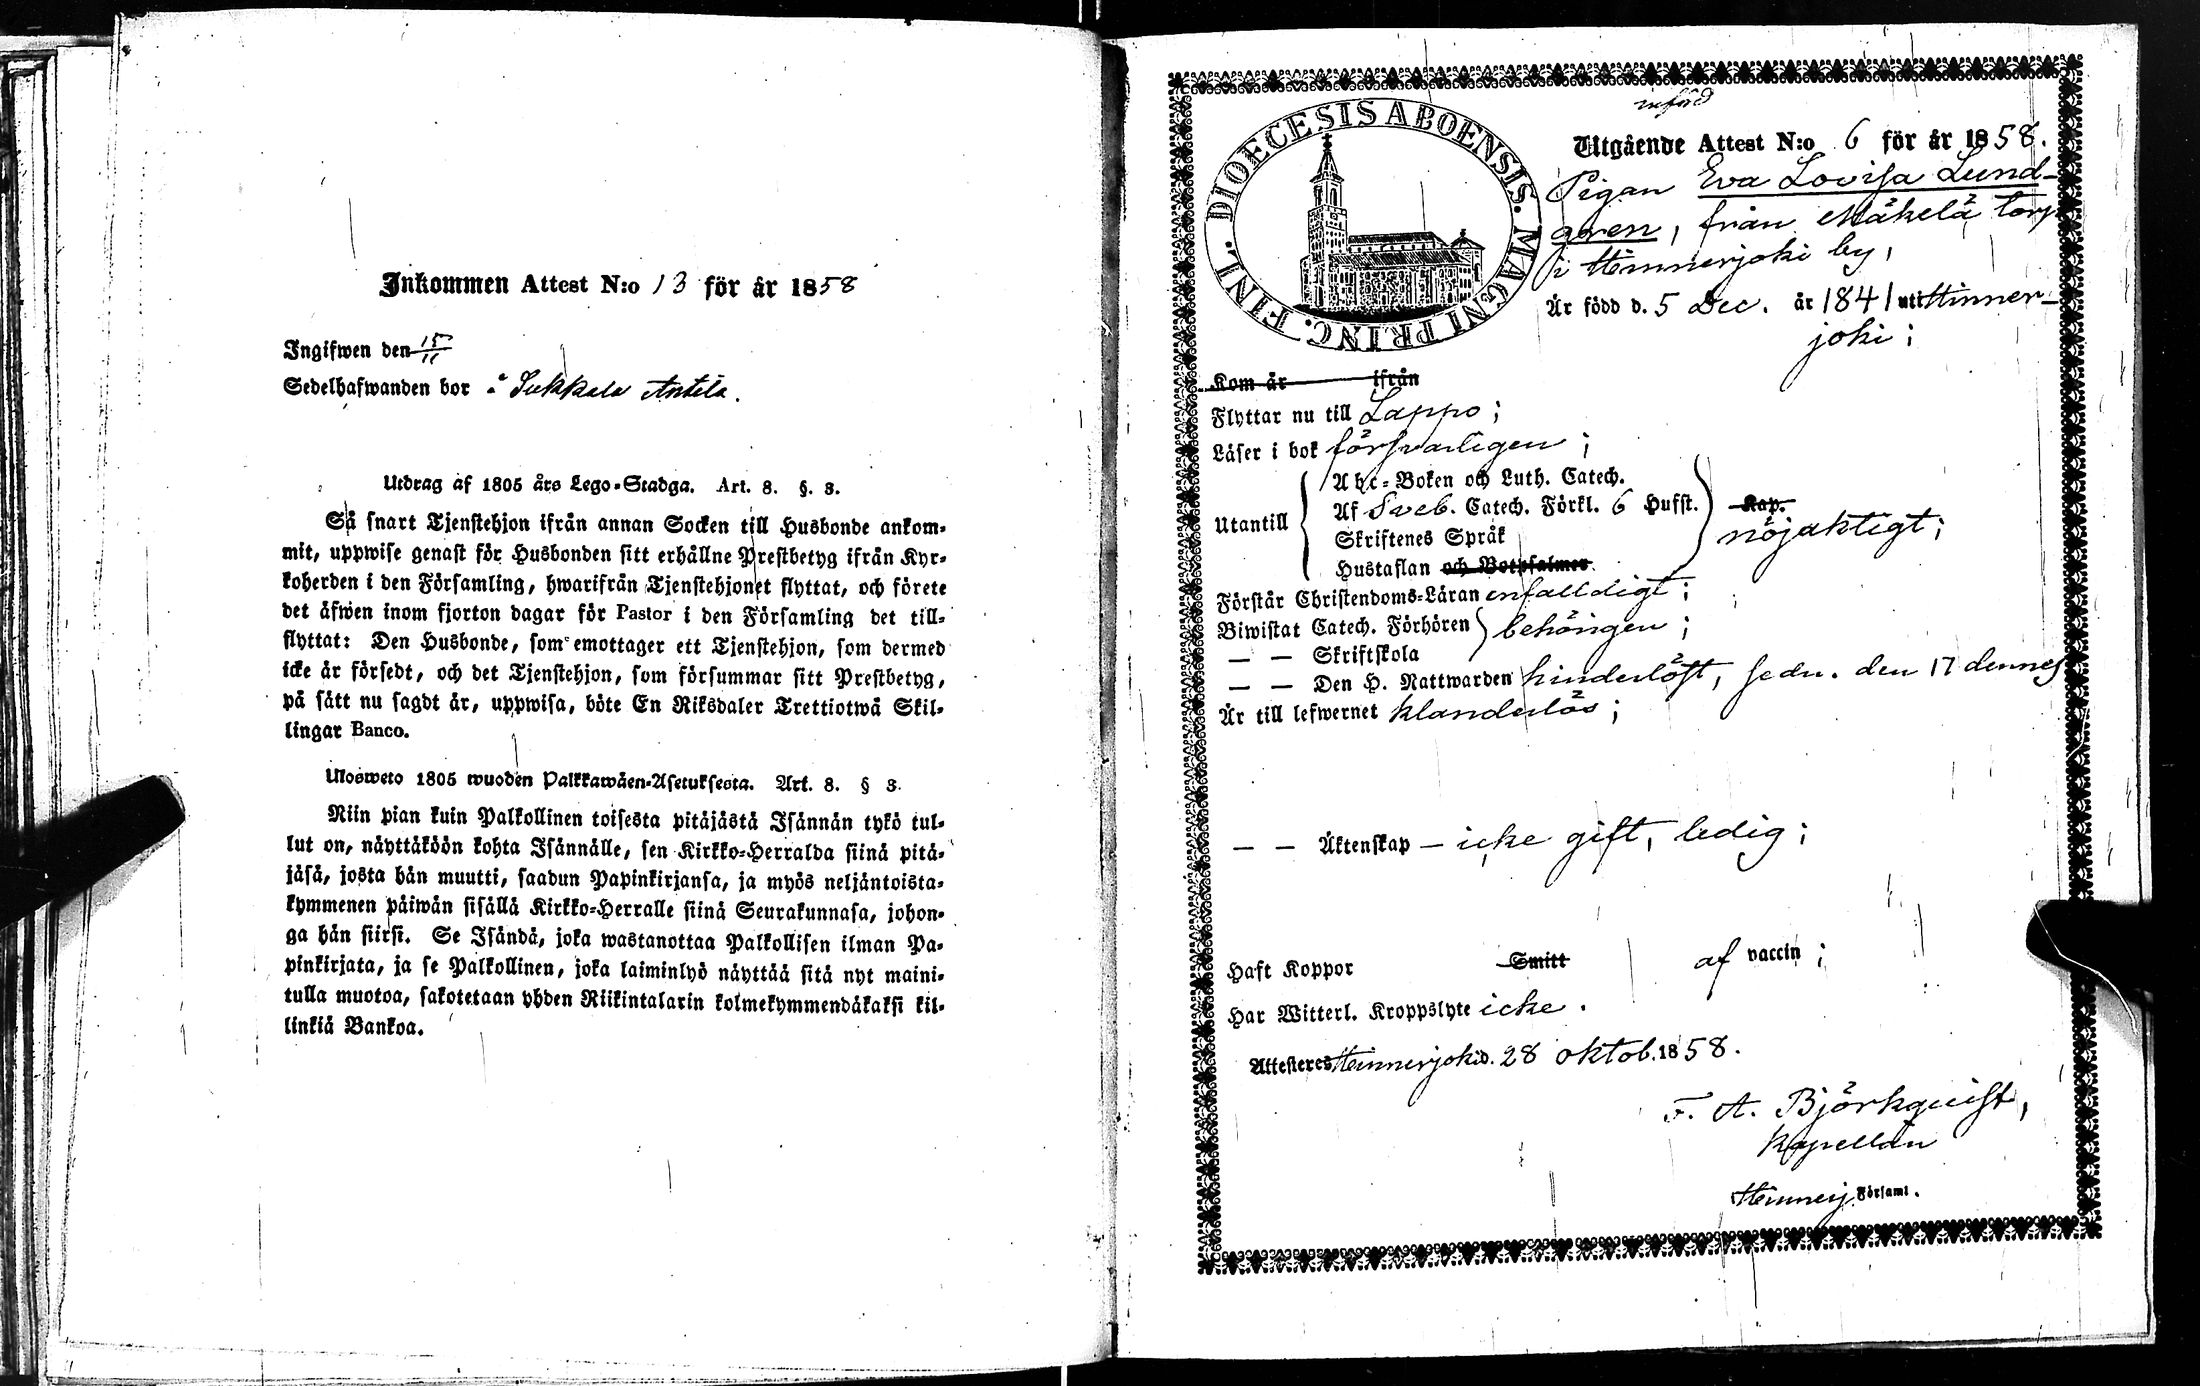 Inkommen Attest N:o 13 för år 1858
Ingifwen den 15/11
Sedelhafwanden bor å Sukkala Anttila.
Utdrag af 1805 års Lego-Stadga. Art. 8. §. 3.
Så snart Tjenstehjon ifrån annan Socken till Husbonde ankom-
mit, uppwise genast för Husbonden sitt erhållne Prestbetyg ifrån Kyr-
koherden i den Församling, hwarifrån Tjenstehjonet flyttat, och förete
det äfwen inom fjorton dagar för Pastor i den Församling det till-
flyttat: Den Husbonde, som emottager ett Tjenstehjon, som dermed
icke är försedt, och det Tjenstehjon, som försummar sitt Prestbetyg,
på sätt nu sagdt är, uppwisa, böte En Riksdaler Trettiotwå Skil-
lingar Banco.
Ulosweto 1805 wuoden Palkkawäen-Asetuksesta. Art. 8. § 3.
Niin pian kuin Palkollinen toisesta pitäjästä Isännän tykö tul-
lut on, näyttäköön kohta Isännälle, sen Kirkko-Herralda siinä pitä-
jäsä, josta hän muutti, saadun Papinkirjansa, ja myös neljäntoista-
kymmenen päiwän sisällä Kirkko-Herralle siinä Seurakunnasa, johon-
ga hän siirsi. Se Isändä, joka wastanottaa Palkollisen ilman Pa-
pinkirjata, ja se Palkollinen, joka laiminlyö näyttää sitä nyt maini-
tulla muotoa, sakotetaan yhden Riikintalarin kolmekymmendäkaksi kil-
linkiä Bankoa.
införd
DIOECESIS ABOENSIS. MAGNI PRINC. FINL.
Utgående Attest N:o 6 för år 1858.
Pigan Eva Lovisa Lund-
gren, från Mäkelä torp
i Hinnerjoki by,
Är född d. 5 Dec. år 1841 uti Hinner-
joki;
Kom år ifrån
Flyttar nu till Lappo;
Läser i bok försvarligen;
Utantill
Abc-Boken och Luth. Catech.
Af Sveb. Catech. Förkl. 6 Hufst. Kap.
Skriftenes Språk nöjaktigt;
Hustaflan och Botpsalmer.
Förstår Christendoms-Läran enfalldigt;
Biwistat Catech. Förhören behörigen;
— — Skriftskola
— — Den H. Nattwarden hinderlöst, sedn. den 17 dennes
Är till lefwernet klanderlös;
— — Äktenskap — icke gift, ledig;
Haft Koppor Smitt af vaccin;
Har Witterl. Kroppslyte icke.
Attesteres Hinnerjoki d. 28 oktob. 1858.
F. A. Björkquist,
Kapellan
Hinnerj. Församl.